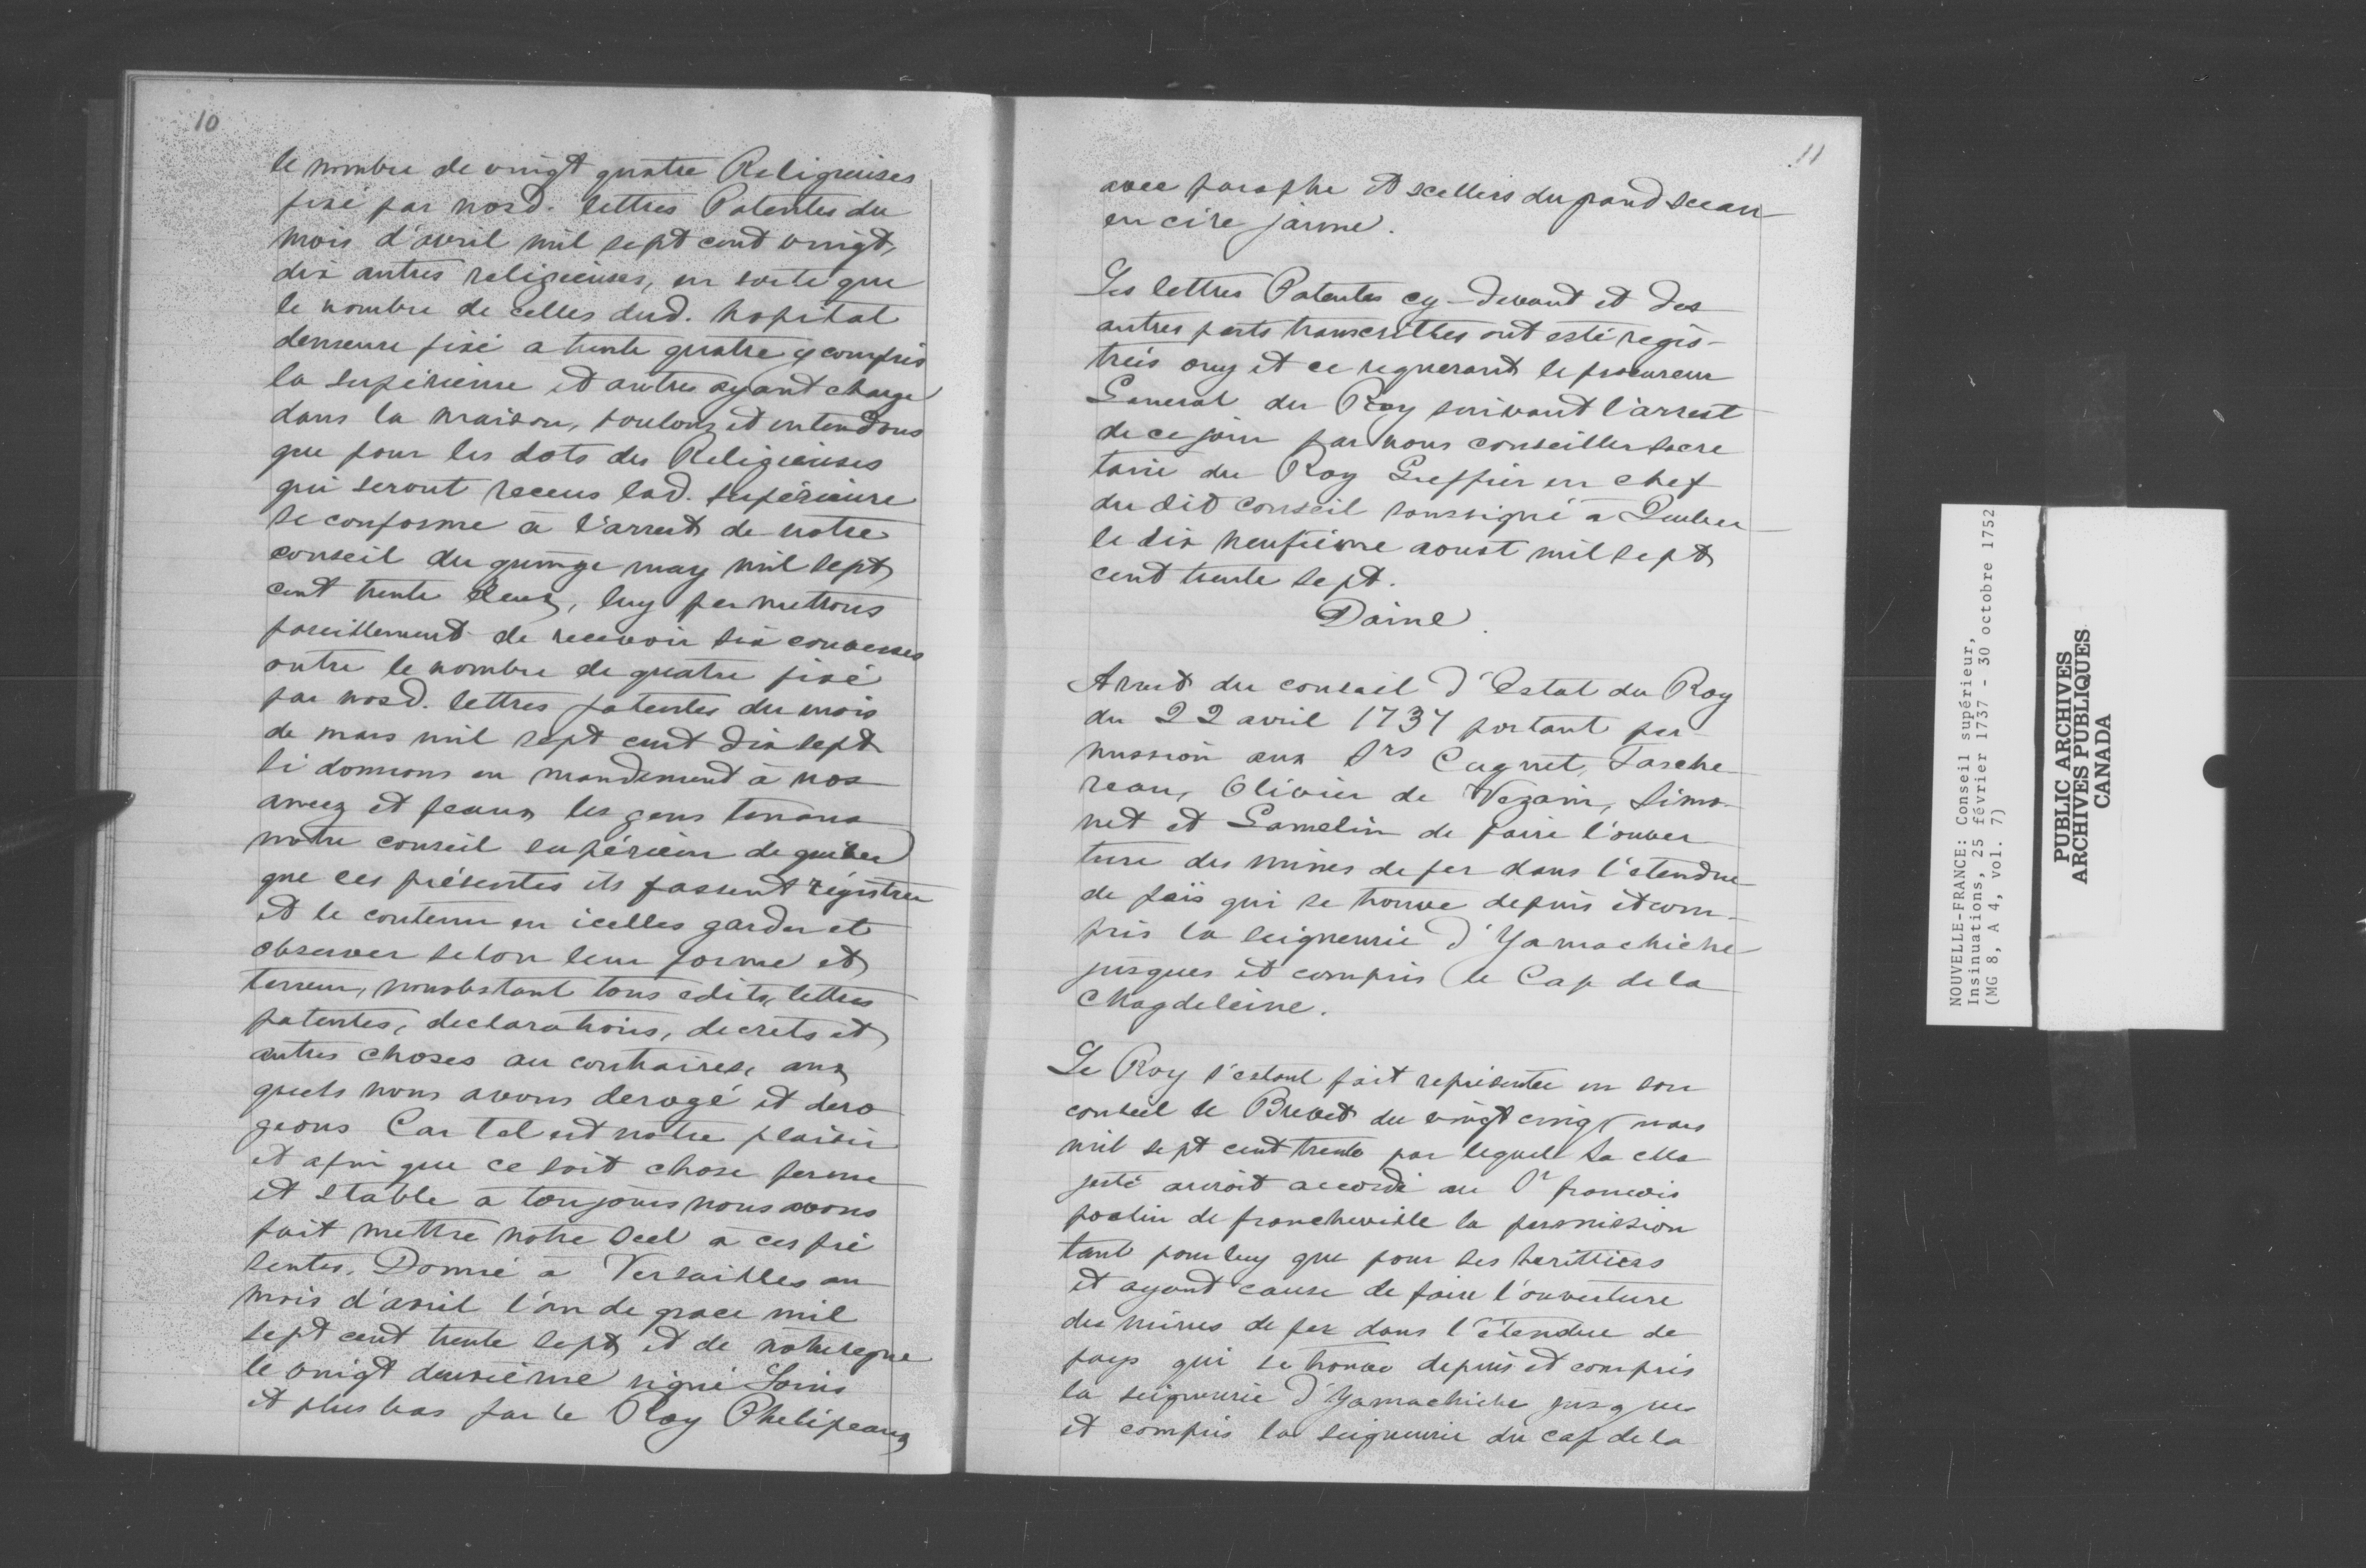 10
le nombre de vingt quatre Religieuses
fixé par nosd. lettres Patentes du
mois d'avril mil sept cent vingt,
dix autres religieuses, en sorte que
le nombre de celles dud. hopital
demeure fixé a trente quatre y compris
la supérieure et autres ayant charge
dans la maison, voulons et entendons
que pour les dots des Religieuses
qui seront receus lad. supérieure
se conforme à l'arrest de notre
conseil du quinze may mil sept
cent trente deux, luy permettons
pareillement de recevoir six converses
outre le nombre de quatre fixé
par nosd. lettres patentes du mois
de mars mil sept cent dix sept
si donnons en mandement à nos
amez et feaux les gens tenans
notre conseil supérieur de quebec
que ces présentes ils fassent régistrer
et le contenu en icelles garder et
observer selon leur forme et
teneur, nonobstant tous edits, lettres
patentes, declarations, decrets et
autres choses au contraires, aux
quels nous avons derogé et dero
geons Car tel est notre plaisir
et afin que ce soit chose ferme
et stable à toujours nous avons
fait mettre notre scel à ces pré
sentes. Donné à Versailles au
mois d'avril l'an de grace mil
sept cent trente sept et de notre regne
le vingt deuxième signé Louis
et plus bas par le Roy Phelipeaux
11
avec paraphe et scellées du grand sceau
en cire jaune.
Les lettres Patentes cy-devant et des
autres parts transcrittes ont esté regis-
trées ouy et ce requerant le procureur
General du Roy suivant l'arrest
de ce jour par nous conseiller secre
taire du Roy Greffier en chef
du dit conseil soussigné à Quebec
le dix neufieme aoust mil sept
cent trente sept.
Daine.
Arrest du conseil d'Estat du Roy
du 22 avril 1737 portant per
mission aux Srs Cugnet, Tasche-
reau, Olivier de Vezain, Simo-
net et Gamelin de faire l'ouver
ture des mines de fer dans l'etendue
de païs qui se trouve depuis et com-
pris la seigneurie d'Yamachiche
jusques et compris le Cap de la
Magdeleine.
Le Roy s'estant fait représenter en son
conseil le Brevet du vingt cinq mars
mil sept cent trente par lequel Sa Ma
jesté auroit accordé au Sr francois
poulin de francheville la permission
tant pour luy que pour ses heritiers
et ayant cause de faire l'ouverture
des mines de fer dans l'étendue de
pays qui se trouve depuis et compris
la seigneurie d'Yamachiche jusques
et compris la seigneurie du cap de la
NOUVELLE-FRANCE: Conseil supérieur,
Insinuations, 25 février 1737 - 30 octobre 1752
(MG 8, A 4, vol. 7)
PUBLIC ARCHIVES
ARCHIVES PUBLIQUES
CANADA